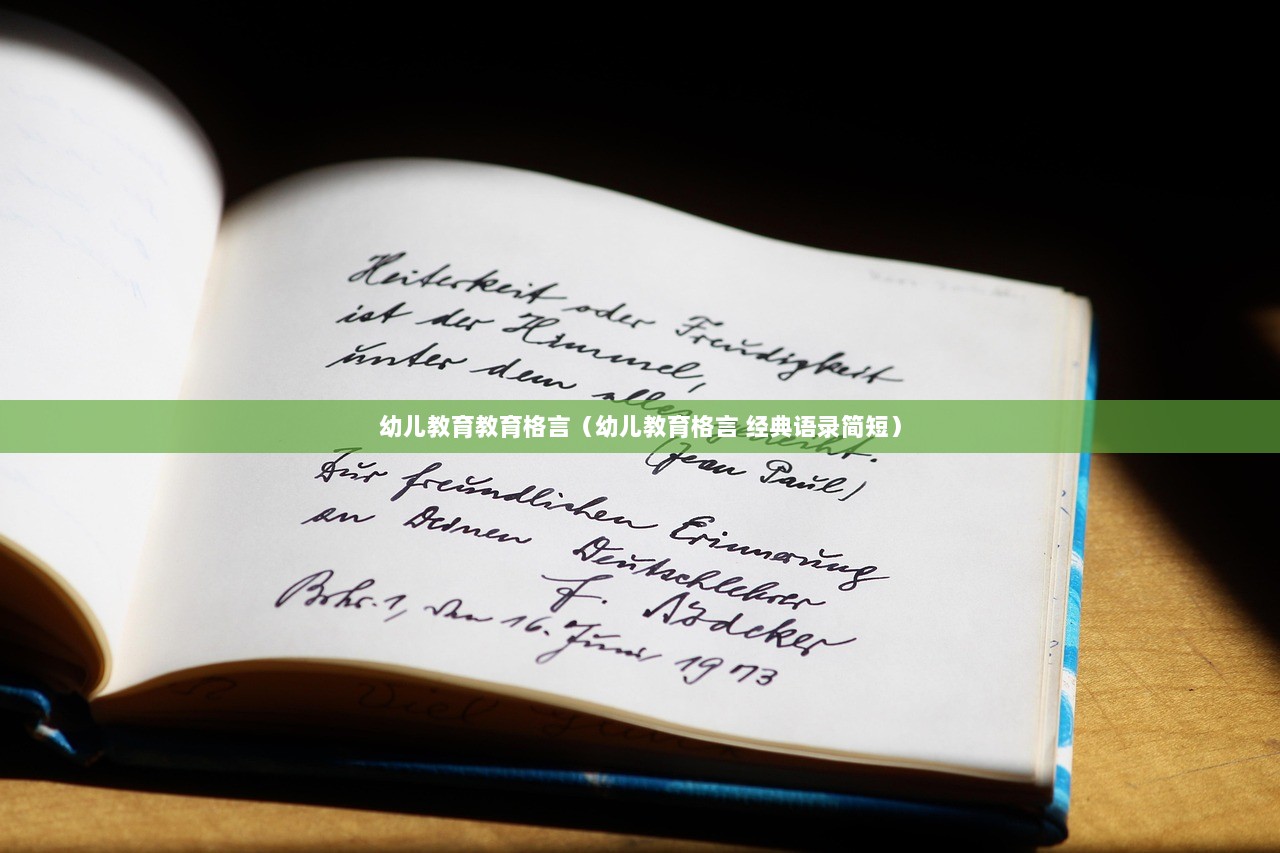 Heiterkeit oder Freudigkeit
ist der Himmel,
unter dem alles
幼儿教育教育格言（幼儿教育格言 经典语录简短）
(Jean Paul)
Zur freundlichen Erinnerung
an Deinen Deutschlehrer
F.
den 16. Juni 1973
Viel